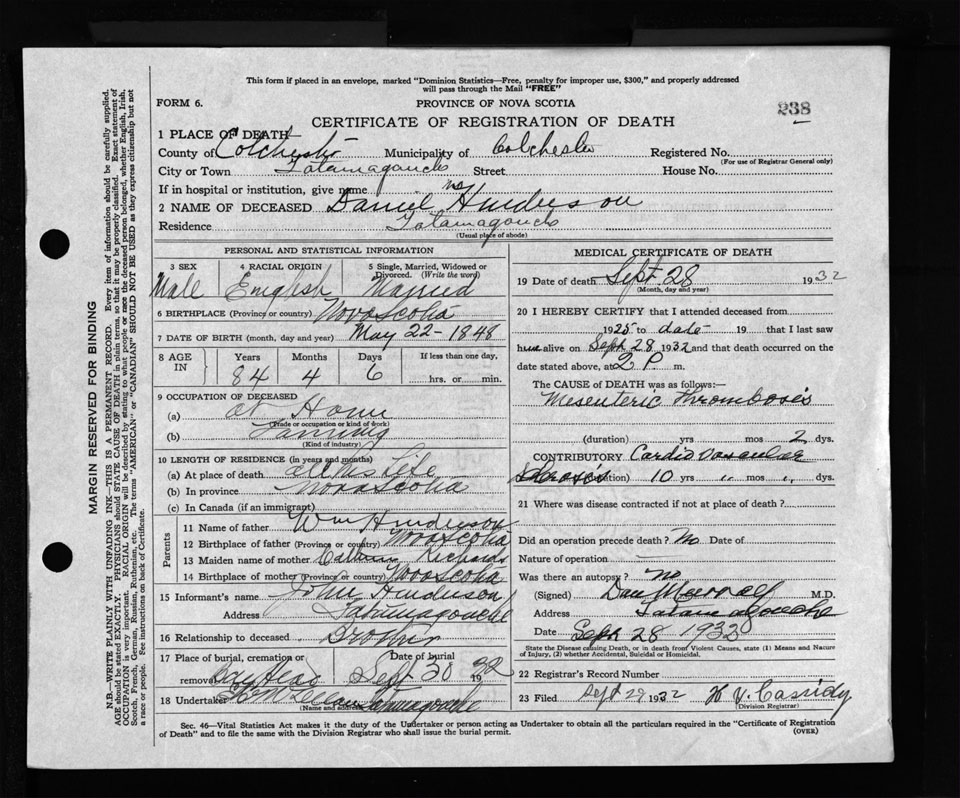 This form if placed in an envelope, marked "Dominion Statistics—Free, penalty for improper use, $300," and properly addressed
will pass through the Mail "FREE"
FORM 6.
PROVINCE OF NOVA SCOTIA
238
CERTIFICATE OF REGISTRATION OF DEATH
1 PLACE OF DEATH
County of Colchester Municipality of Colchester Registered No.
(For use of Registrar General only)
City or Town Tatamagouche Street House No.
If in hospital or institution, give name
2 NAME OF DECEASED Daniel Henderson
Residence Tatamagouche
(Usual place of abode)
PERSONAL AND STATISTICAL INFORMATION
3 SEX 4 RACIAL ORIGIN 5 Single, Married, Widowed or Divorced. (Write the word)
Male English Married
6 BIRTHPLACE (Province or country) Nova Scotia
7 DATE OF BIRTH (month, day and year) May 22-1848
8 AGE IN Years Months Days If less than one day,
84 4 6 hrs. or min.
9 OCCUPATION OF DECEASED
(a) at Home
(Trade or occupation or kind of work)
(b) Farming
(Kind of industry)
10 LENGTH OF RESIDENCE (in years and months)
(a) At place of death all his Life
(b) In province Nova Scotia
(c) In Canada (if an immigrant)
Parents
11 Name of father Wm Henderson
12 Birthplace of father (Province or country) Nova Scotia
13 Maiden name of mother Richards
14 Birthplace of mother (Province or country) Nova Scotia
15 Informant's name John Henderson
Address Tatamagouche
16 Relationship to deceased Brother
17 Place of burial, cremation or removal Date of burial
Sept 30 1932
18 Undertaker Tatamagouche
MEDICAL CERTIFICATE OF DEATH
19 Date of death Sept 28 1932
(Month, day and year)
20 I HEREBY CERTIFY that I attended deceased from
1925 to date 19 that I last saw
him alive on Sept 28 1932 and that death occurred on the
date stated above, at 2 P. m.
The CAUSE OF DEATH was as follows:—
Mesenteric Thrombosis
(duration) yrs mos 2 dys.
CONTRIBUTORY Cardio Vascular
Sclerosis (duration) 10 yrs " mos " dys.
21 Where was disease contracted if not at place of death?
Did an operation precede death? No Date of
Nature of operation
Was there an autopsy? no
(Signed) Dan Murray M.D.
Address Tatamagouche
Date Sept 28 1932
State the Disease causing Death, or in death from Violent Causes, state (1) Means and Nature
of Injury, (2) whether Accidental, Suicidal or Homicidal.
22 Registrar's Record Number
23 Filed Sept 29 1932 H V. Cassidy
(Division Registrar)
Sec. 46—Vital Statistics Act makes it the duty of the Undertaker or person acting as Undertaker to obtain all the particulars required in the "Certificate of Registration
of Death" and to file the same with the Division Registrar who shall issue the burial permit.
(OVER)
MARGIN RESERVED FOR BINDING
N.B.—WRITE PLAINLY WITH UNFADING INK—THIS IS A PERMANENT RECORD. Every item of information should be carefully supplied.
AGE should be stated EXACTLY. PHYSICIANS should STATE CAUSE OF DEATH in plain terms, so that it may be properly classified. Exact statement of
OCCUPATION is very important. RACIAL ORIGIN will be described by stating to what people or race the deceased person belonged, whether English, Irish,
Scotch, French, German, Russian, Ruthenian, etc. The terms "AMERICAN" or "CANADIAN" SHOULD NOT BE USED as they express citizenship but not
a race or people. See instructions on back of Certificate.